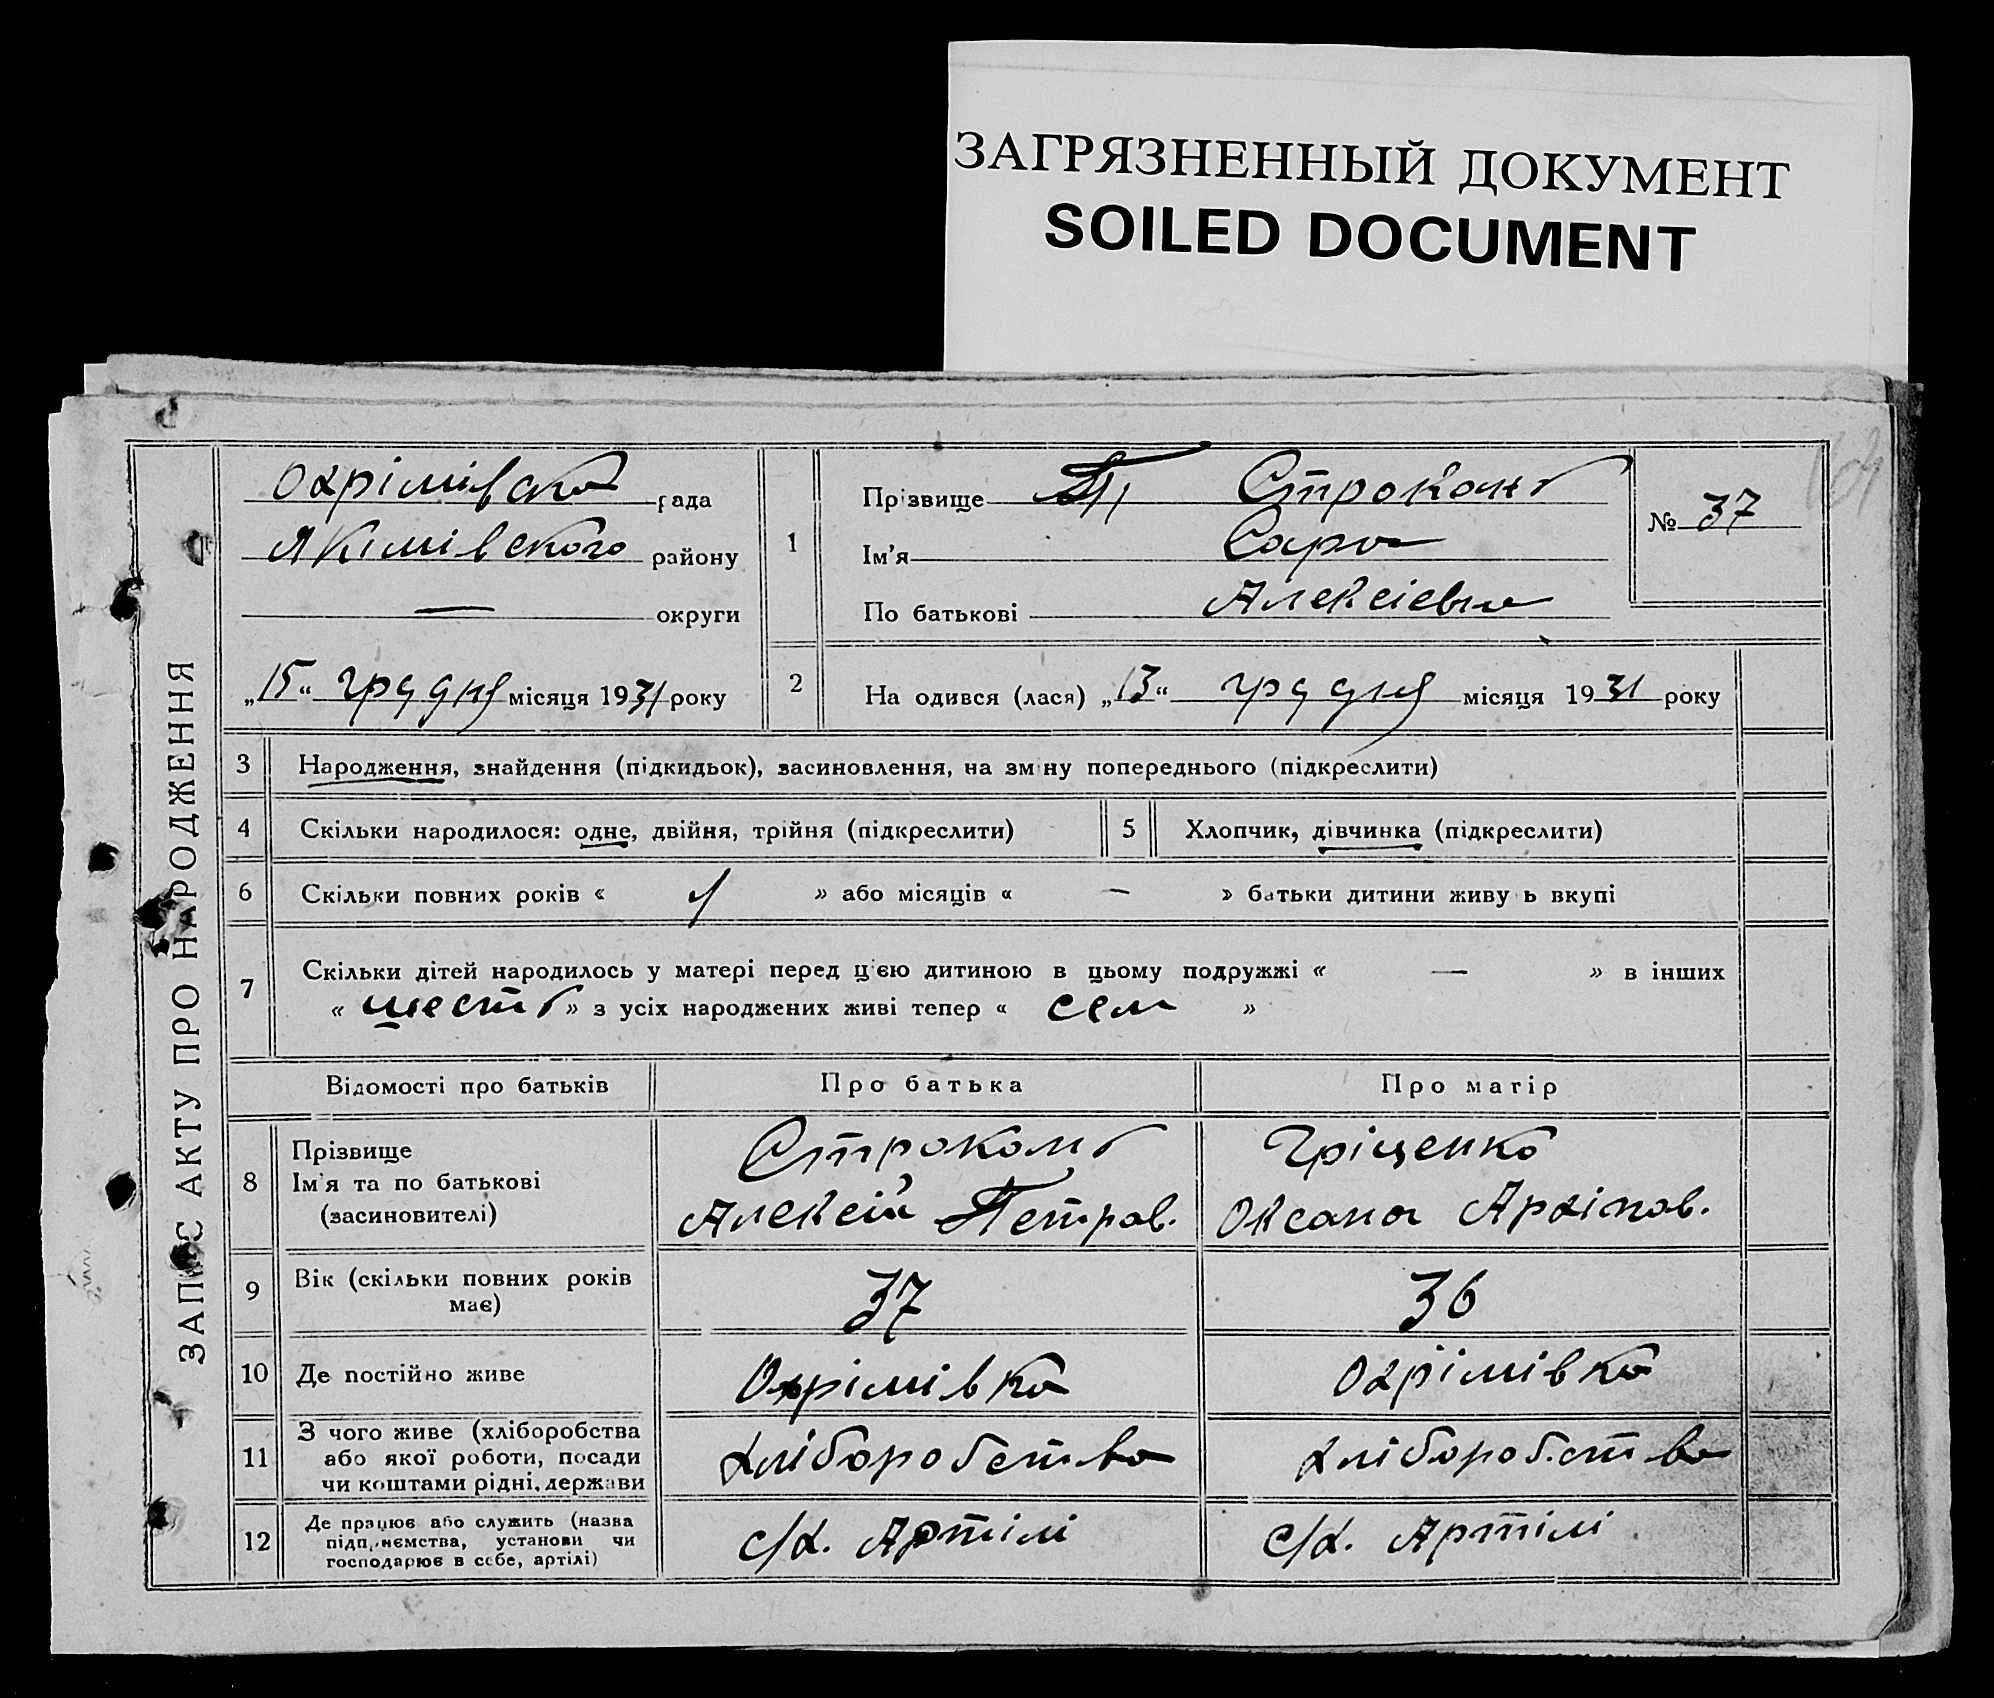 ЗАГРЯЗНЕННЫЙ ДОКУМЕНТ
SOILED DOCUMENT
ЗАПИС АКТУ ПРО НАРОДЖЕННЯ
Охрімівска рада
Якимівского району
— округи
„15“ грудня місяця 1931 року
1
Прізвище Строкань
Ім'я Сара
По батькові Алексієвна
№ 37
2
На одився (лася) „13“ грудня місяця 1931 року
3 Народження, знайдення (підкидьок), засиновлення, на зміну попереднього (підкреслити)
4 Скільки народилося: одне, двійня, трійня (підкреслити) 5 Хлопчик, дівчинка (підкреслити)
6 Скільки повних років « » або місяців « — » батьки дитини живу ь вкупі
7 Скільки дітей народилось у матері перед цією дитиною в цьому подружжі « — » в інших
« шесть » з усіх народжених живі тепер « сем »
Відомості про батьків Про батька Про матір
8 Прізвище
Ім'я та по батькові
(засиновителі)
Строкань
Алексій Петров.
Гріценко
Оксана Архіпов.
9 Вік (скільки повних років
має)
37 36
10 Де постійно живе Охрімівка Охрімівка
11 З чого живе (хліборобства
або якої роботи, посади
чи коштами рідні, держави
хліборобство хліборобство
12 Де працює або служить (назва
підприємства, установи чи
господарює в себе, артілі)
с/х. Артілі с/х. Артілі